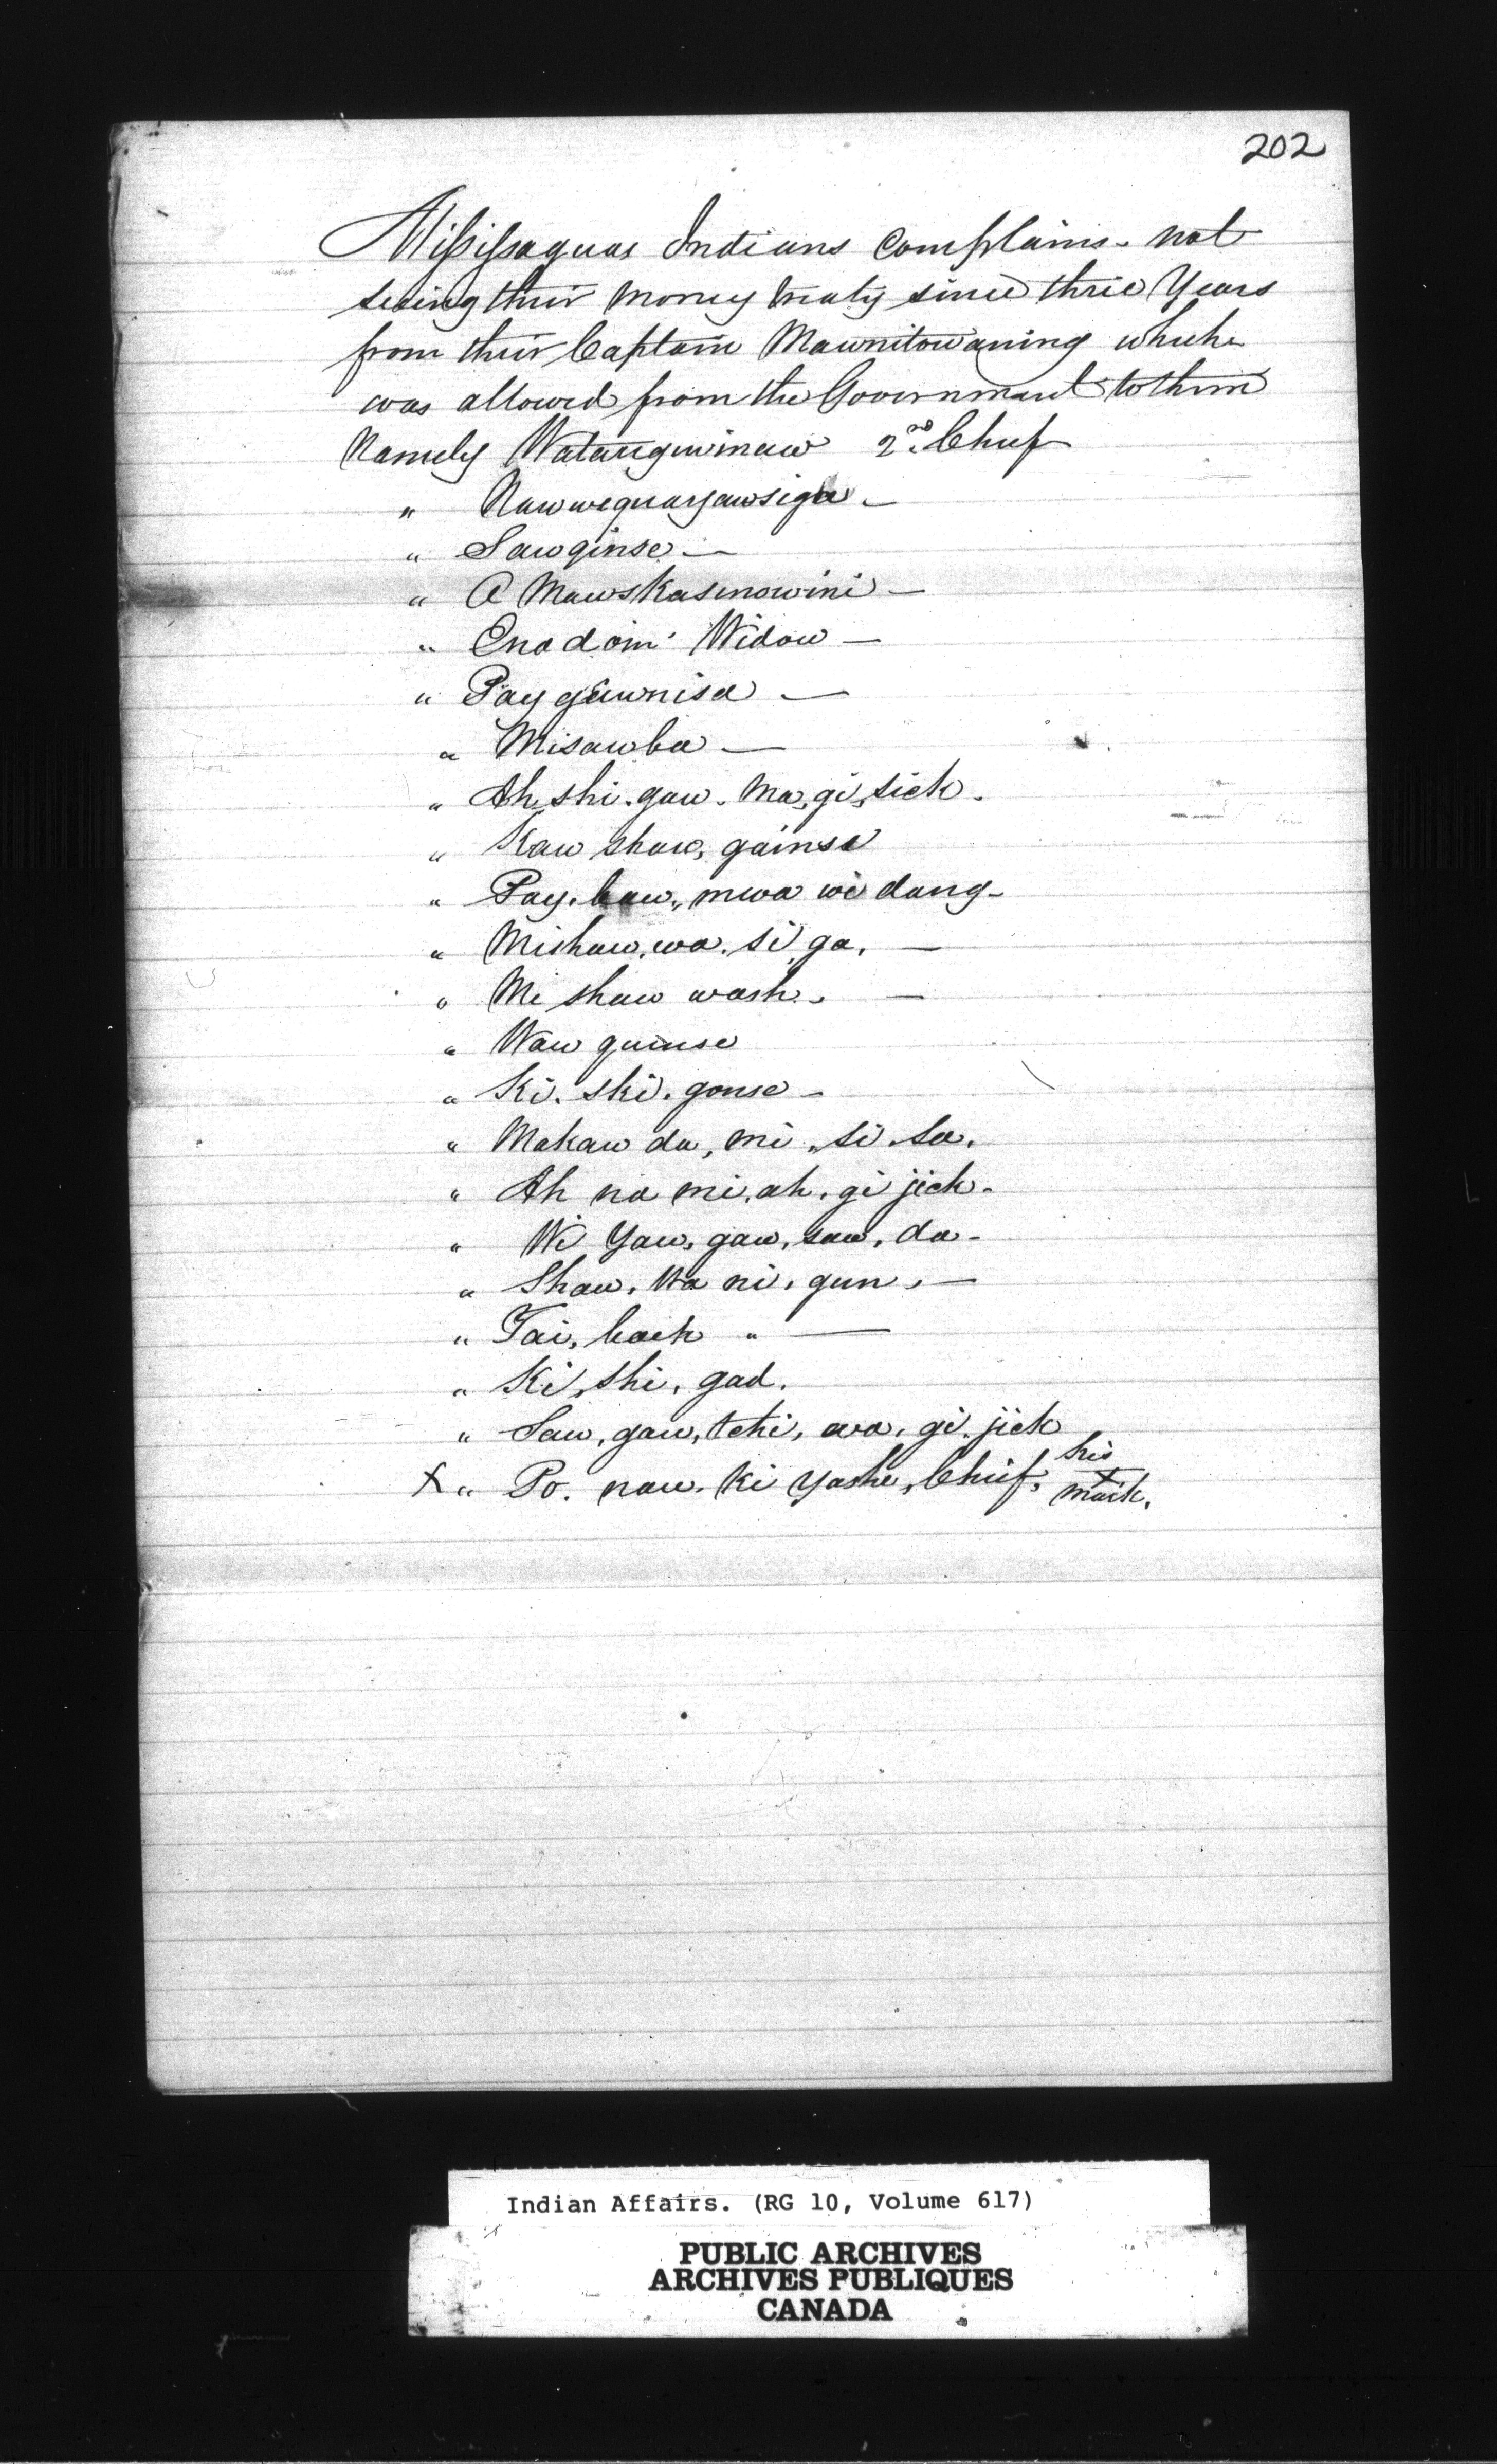 202
Mississaguas Indians Complains. not
seeing their money treaty since three Years
from their Captain Mawnitowaning which
was allowed from the Government to them
Namely Watauguwinaw 2nd Chief
" Nawwequayawsiga —
" Sawginse —
" A Mawskasinowini —
" Enodoin Widow —
" Paygawnisa —
" Misawba —
" Ah, shi. gaw. ma, gi, sick.
" Kaw shaw, gainse
" Pay. baw, mwa wi dang -
" Mishaw, wa. si, ga. —
" Mi shaw wash. —
" Waw guinse
" Ki. ski. gonse -
" Makaw da, mi, si. sa.
" Ah na mi, ah. gi jick -
" Wi Yaw, gaw, saw, da -
" Shaw. wa ni. gun. —
" Tai, back " —
" Ki, shi, gad.
" Saw, gaw, tchi, wa, gi. jick
X " Po. naw. Ki yashe, Chief, his X mark.
Indian Affairs. (RG 10, Volume 617)
PUBLIC ARCHIVES
ARCHIVES PUBLIQUES
CANADA